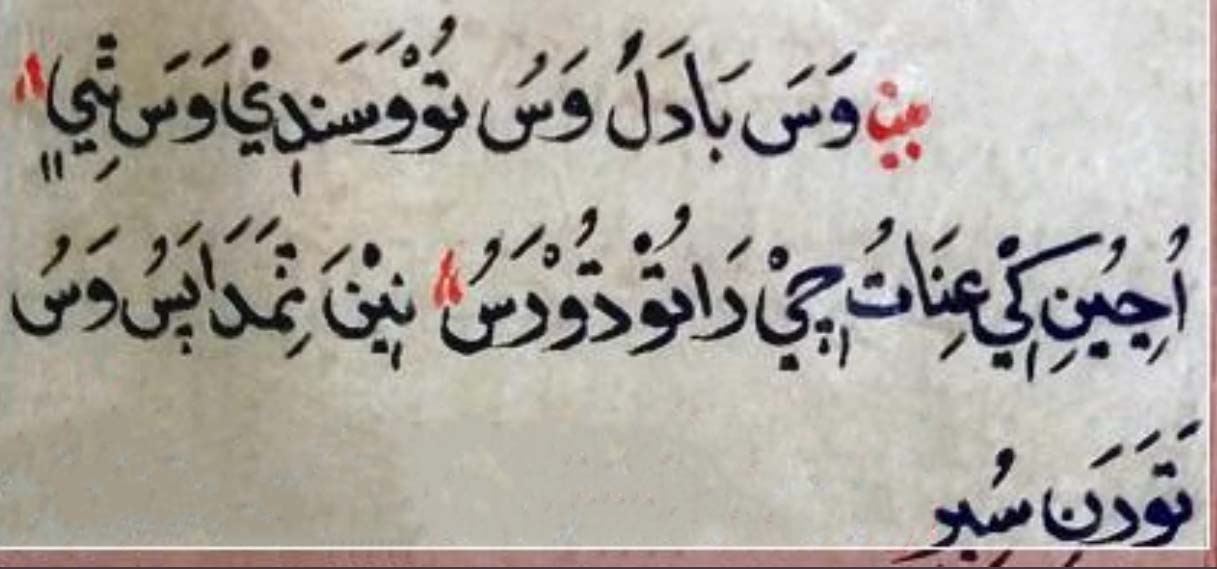 بيت وَسَ بَادَلُ وَسُ تُوْوَسَندِيْ وَسَ ثِييِ
اُجِيُنِ كِيْ عِنَاتُ جِيْ دَاتُوْدُوْرَسُ نِيْنَ نِمَدَاپَسُ وَسُ
تَوْدَنِ سِبُرِ